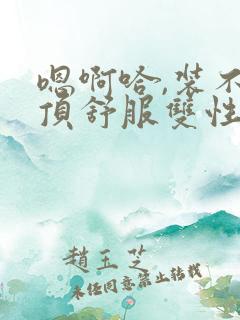 嗯啊哈,裝不
頂舒服雙性
趙玉芝
未经同意禁止转载